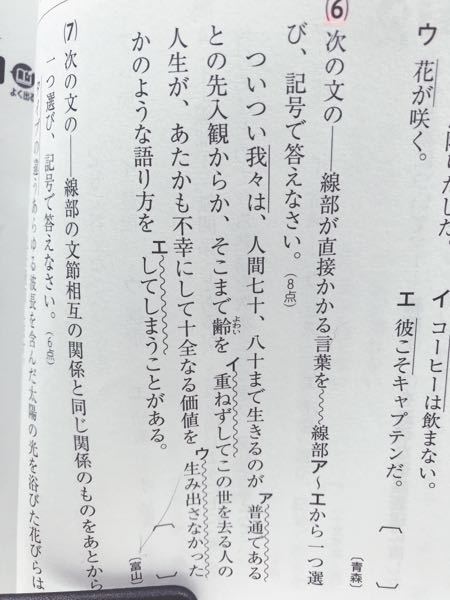 ウ 花が咲く。
イ コーヒーは飲まない。
エ 彼こそキャプテンだ。
〔青森〕
(6) 次の文の――線部が直接かかる言葉を〜〜線部ア〜エから一つ選
び、記号で答えなさい。(8点)
ついつい我々は、人間七十、八十まで生きるのが普通である
ア
との先入観からか、そこまで齢を重ねずしてこの世を去る人の
よわい
イ
人生が、あたかも不幸にして十全なる価値を生み出さなかった
ウ
かのような語り方をしてしまうことがある。
エ
〔富山〕
(7) 次の文の――線部の文節相互の関係と同じ関係のものをあとから
一つ選び、記号で答えなさい。(6点)
の違うあらゆる波長を含んだ太陽の光を浴びた花びらは
よく出る